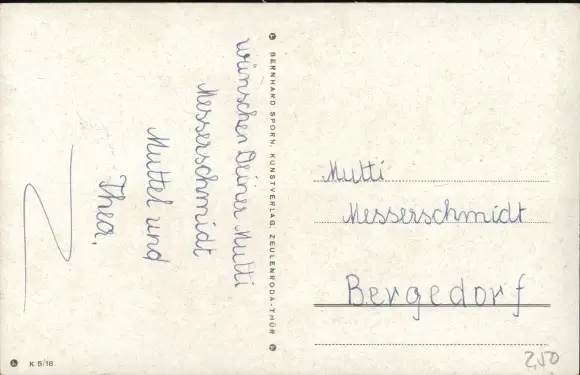 wünschen Deiner Mutti
Messerschmidt
Muttel und
Thea.
BERNHARD SPORN, KUNSTVERLAG, ZEULENRODA-THÜR
Mutti
Messerschmidt
Bergedorf
K.5/18.
2,50